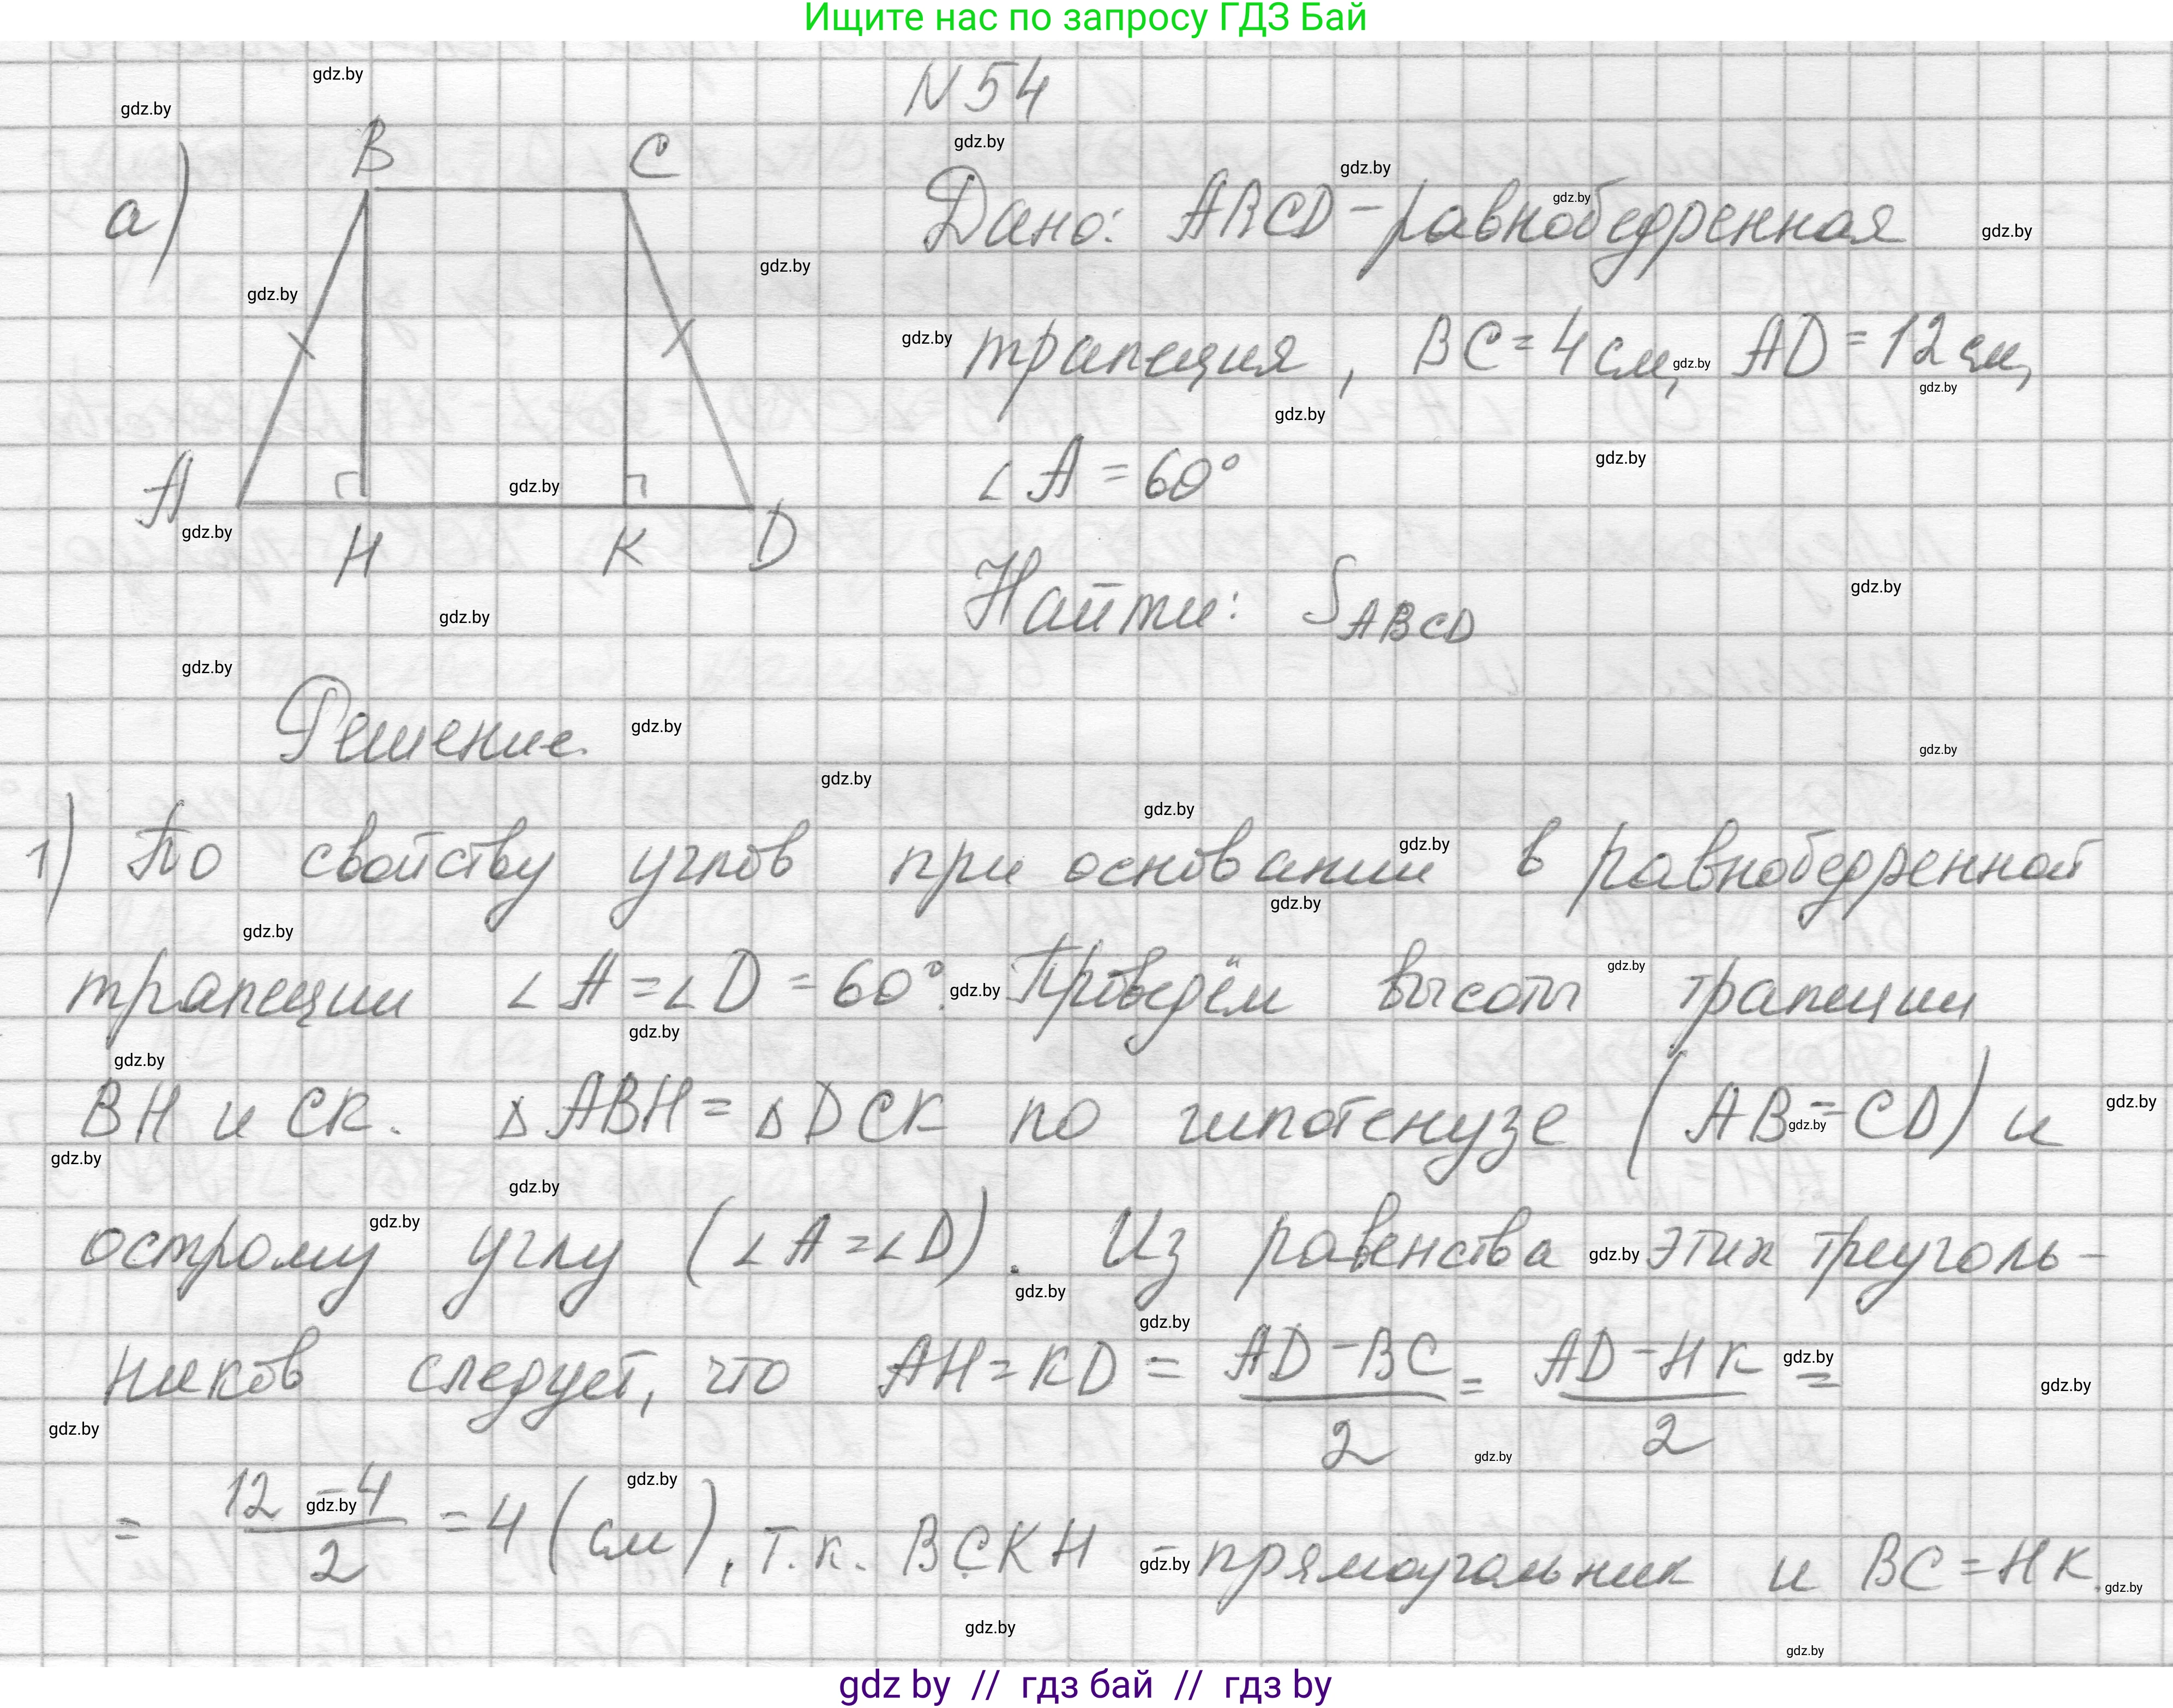 Ищите нас по запросу ГДЗ Бай
N 54
а)
B
C
A
H
K
D
Дано: ABCD - равнобедренная
трапеция, BC = 4 см, AD = 12 см,
∠A = 60°
Найти: S_ABCD
Решение.
1) По свойству углов при основании в равнобедренной
трапеции ∠A = ∠D = 60°. Проведём высоты трапеции
BH и CK. △ABH = △DCK по гипотенузе (AB = CD) и
острому углу (∠A = ∠D). Из равенства этих треуголь-
ников следует, что AH = KD = (AD - BC)/2 = (AD - HK)/2 =
= (12 - 4)/2 = 4 (см), т.к. BCKH - прямоугольник и BC = HK.
gdz by // гдз бай // гдз by